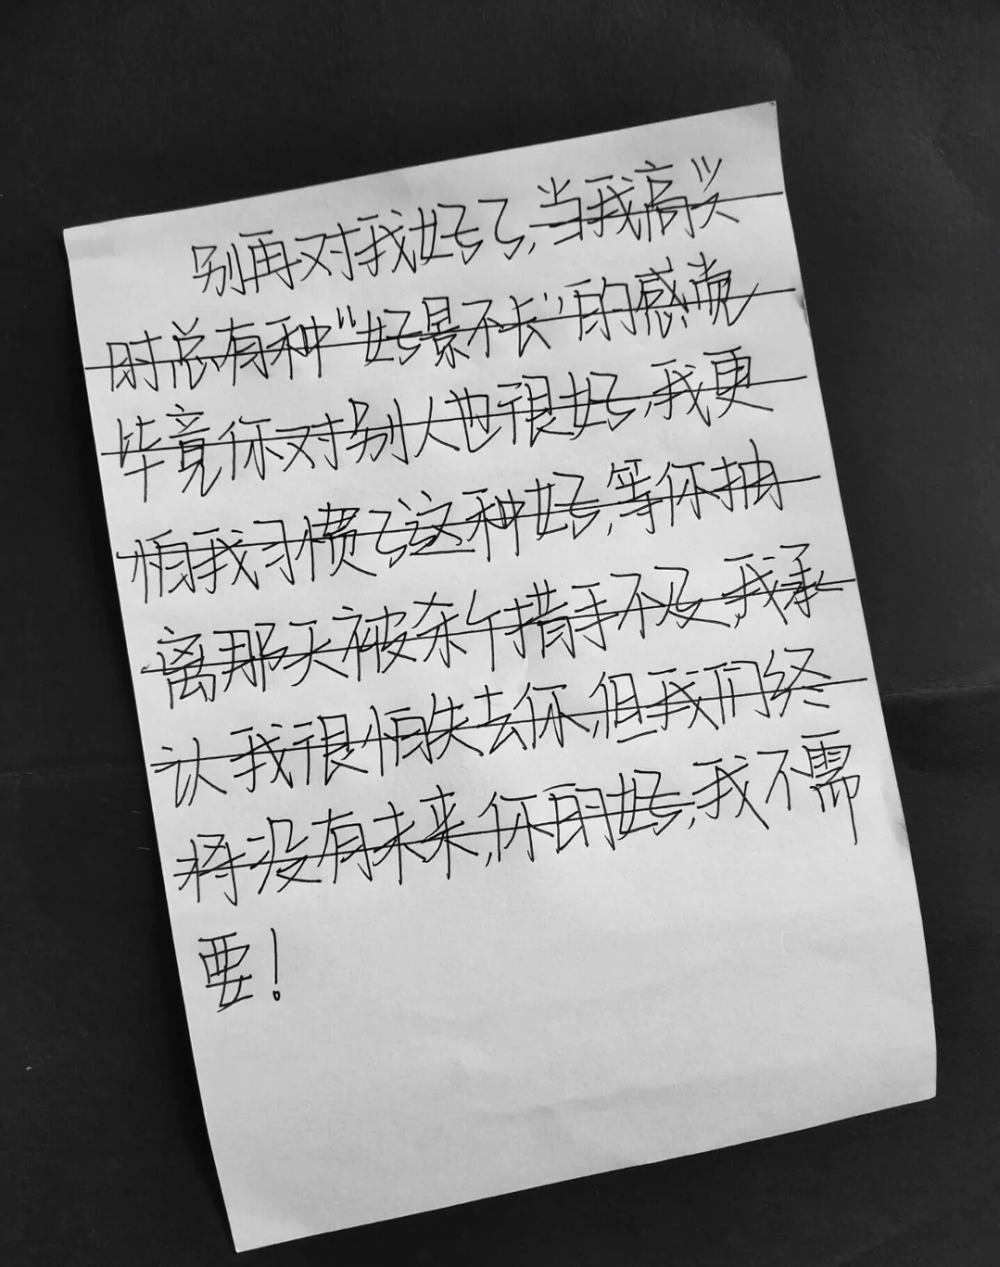 别再对我好了,当我高兴
时总有种"好景不长"的感觉
毕竟你对别人也很好,我更
怕我习惯了这种好,等你抽
离那天被杀个措手不及,我承
认我很怕失去你,但我们终
将没有未来,你的好,我不需
要!